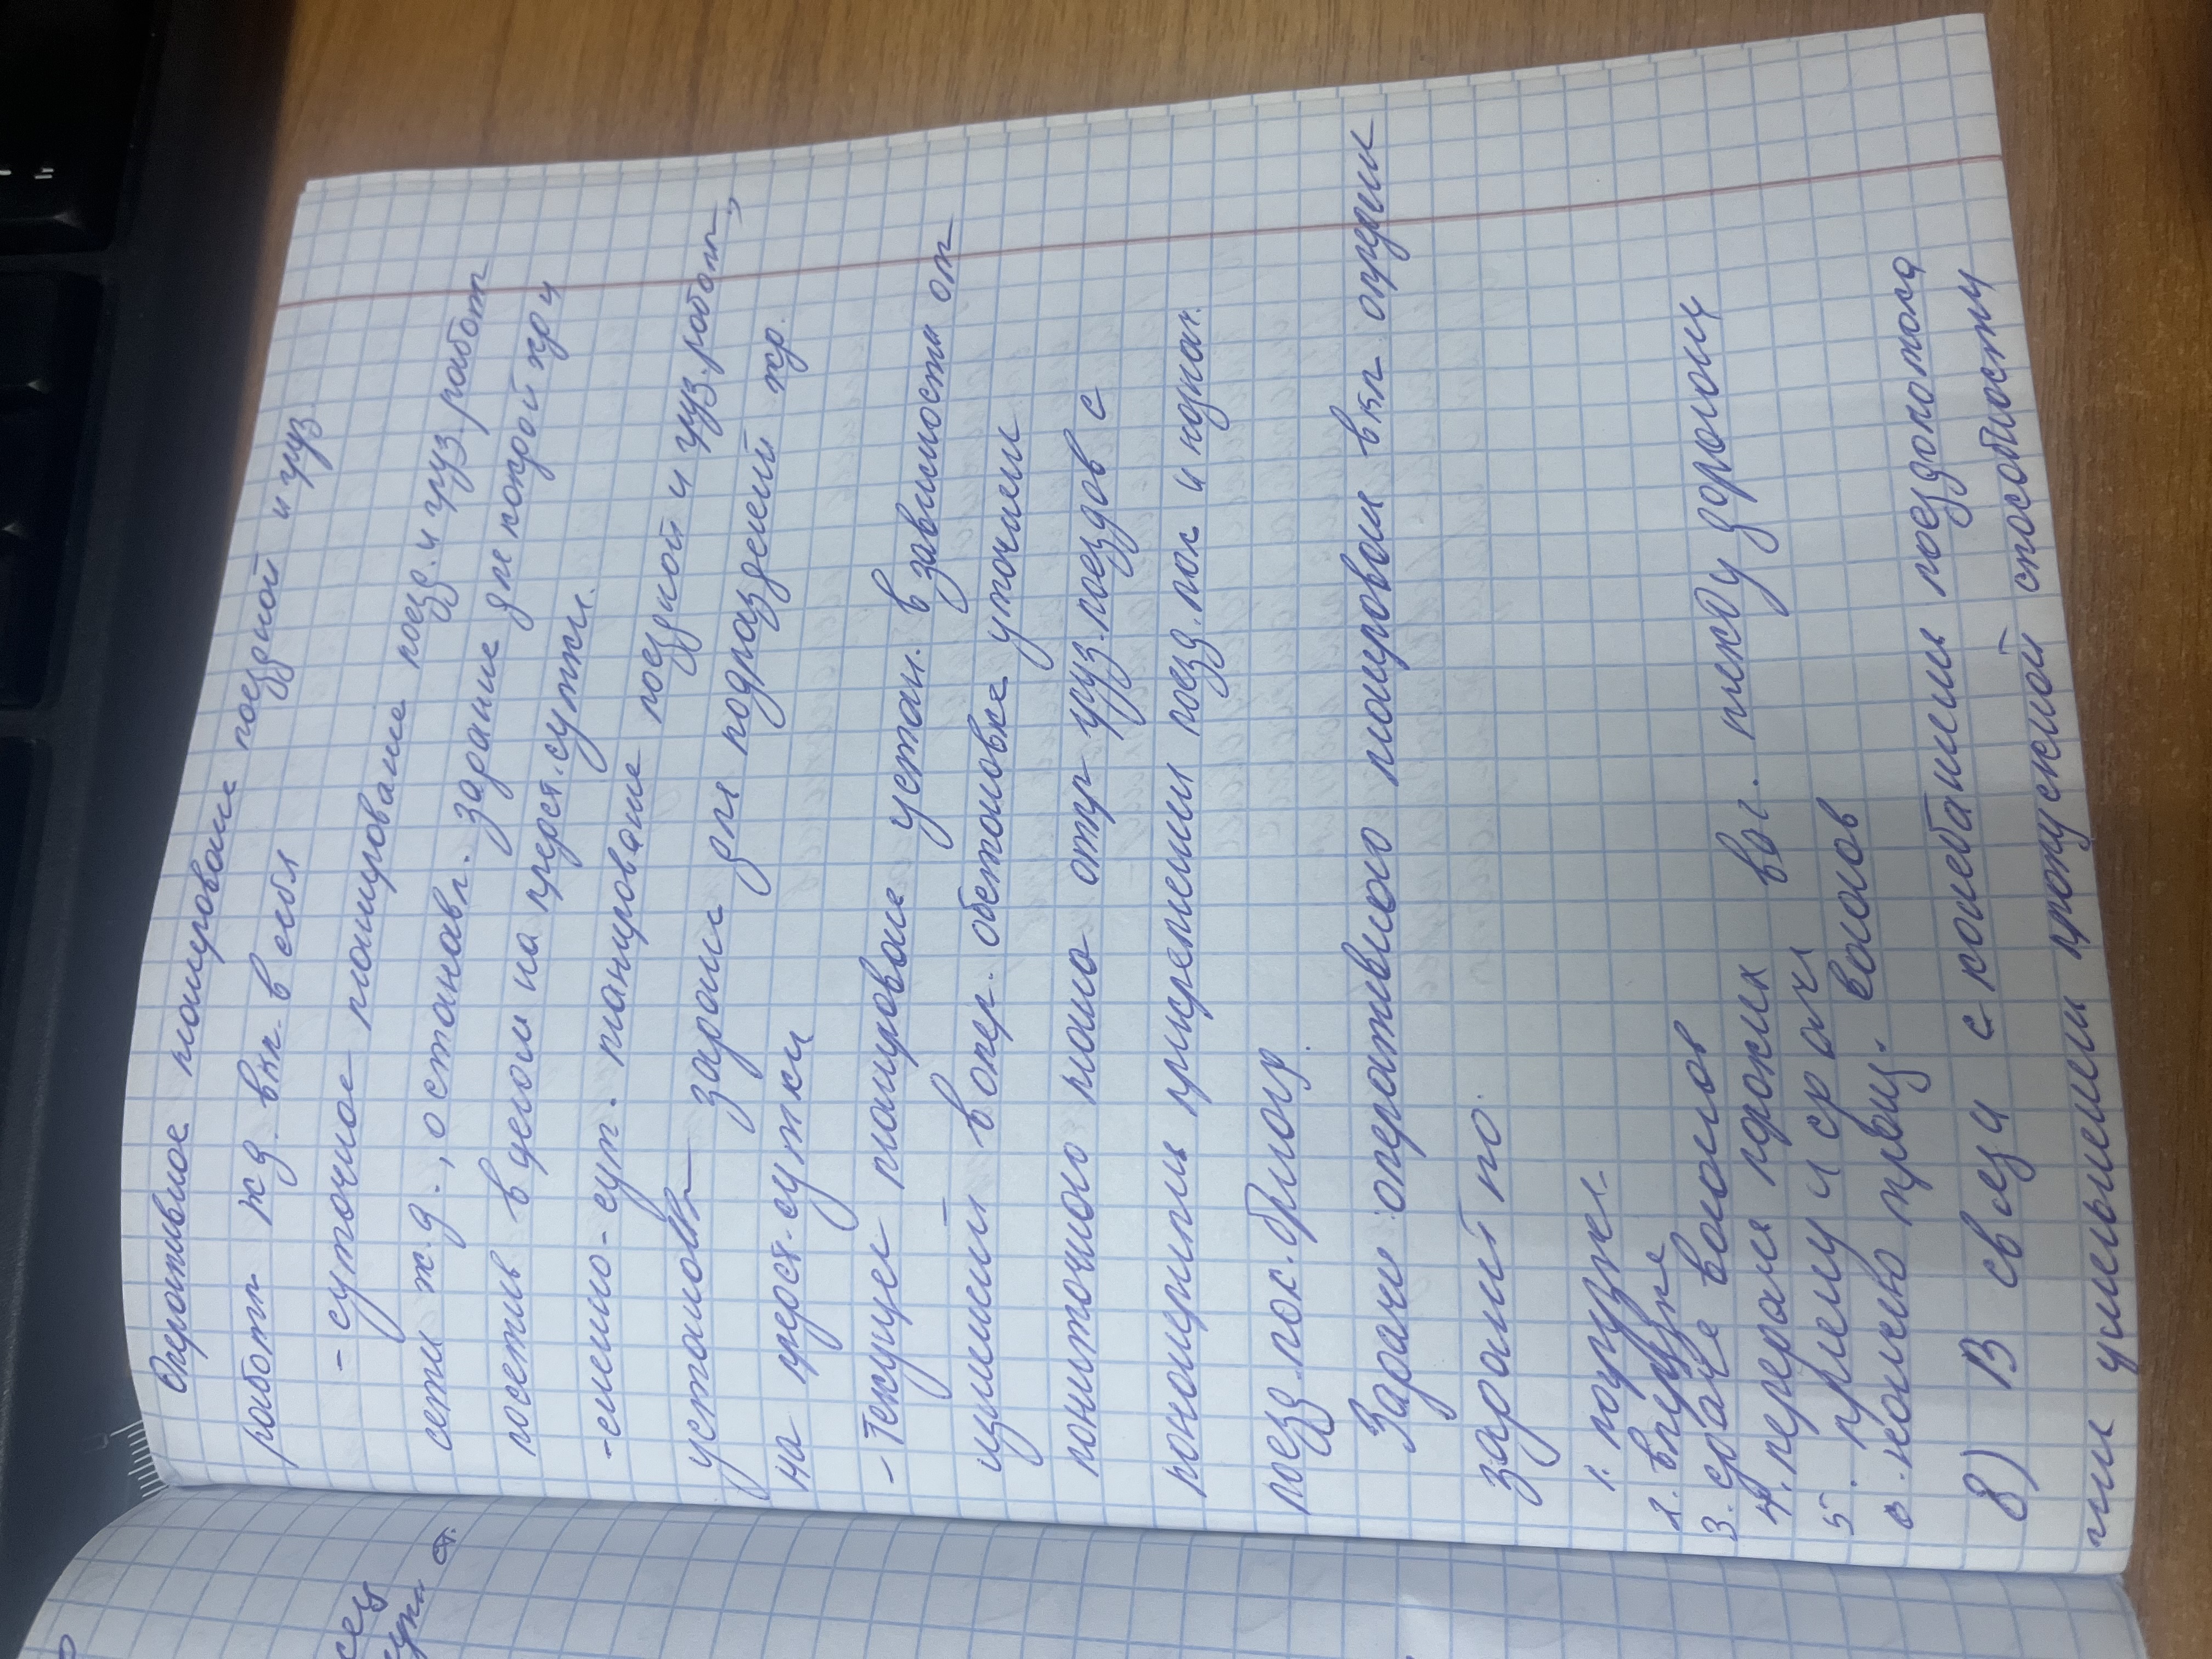 Оперативное планирование поездной и груз
работы жд. вкл. в себя
- суточное планирование поезд. и груз. работы
сети ж.д., останавл. задание для которой жд и
в целом на предст. сутки.
- сменно-сут. планирование поездной и груз. работы,
задание для подразделений жд.
на предст. сутки
- Текущее планирование устан. в зависимости от
в опер. обстановке уточнением
плана отпр груз. поездов с
прикреплением поезд. лок и
поезд. лок. бригад.
Задачи оперативного планирования вкл
заданий по:
1. погрузке
2. выгрузке
3. сдаче вагонов
4. передаче порожних ваг. между дорогами
5. приему и сдачи
вагонов
8) В связи с колебаниями поездопотока
или уменьшением пропускной способности